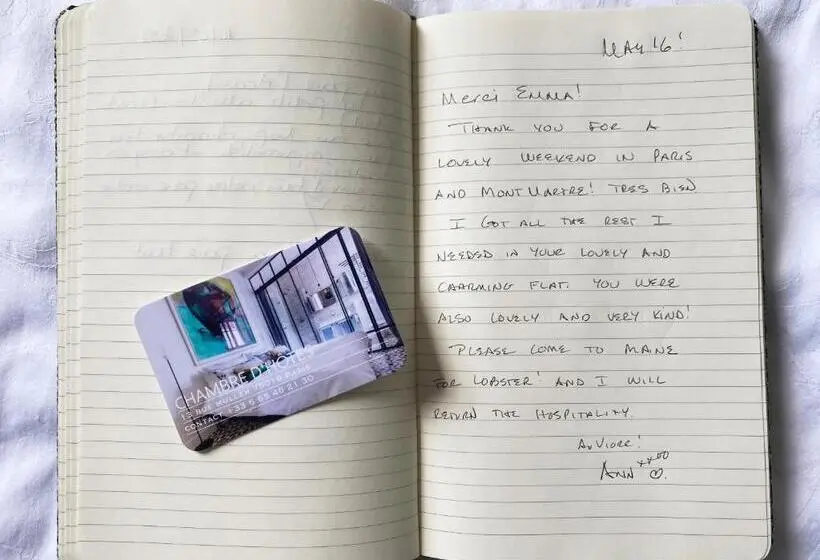 CHAMBRE D'HÔTES
15 RUE MULLER 75018 PARIS
CONTACT +33 6 65 46 21 30
MAY '16!
Merci EMMA!
THANK YOU FOR A
LOVELY WEEKEND IN PARIS
AND MONTMARTRE! TRES BIEN
I GOT ALL THE REST I
NEEDED IN YOUR LOVELY AND
CHARMING FLAT. YOU WERE
ALSO LOVELY AND VERY KIND!
PLEASE COME TO MAINE
FOR LOBSTER! AND I WILL
RETURN THE HOSPITALITY.
ANN xxoo